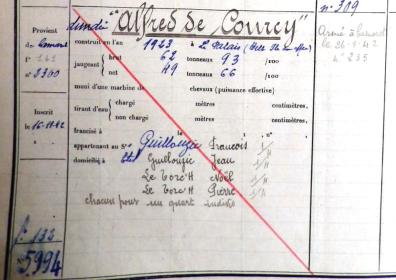 n° 319
dundee "Alfred de Courcy"
Provient
de Camaret
f° 141
n° 2300
construit en l'an 1923 à Le Palais (Belle Ile en Mer)
jaugeant { brut 62 tonneaux 93 /100
net 49 tonneaux 66 /100
Armé à Camaret
le 26-1-42
n° 235
muni d'une machine de chevaux (puissance effective)
tirant d'eau { chargé mètres centimètres.
non chargé mètres centimètres.
Inscrit
le 16-11-42
francisé à le n°
appartenant au Sr Guillouzic François 1/4
domicilié à Etel Guillouzic Jean 1/4
Le Corc'H Noël 1/4
Le Corc'H Pierre 1/4
chacun pour un quart indivis
f° 132
N° 5.994